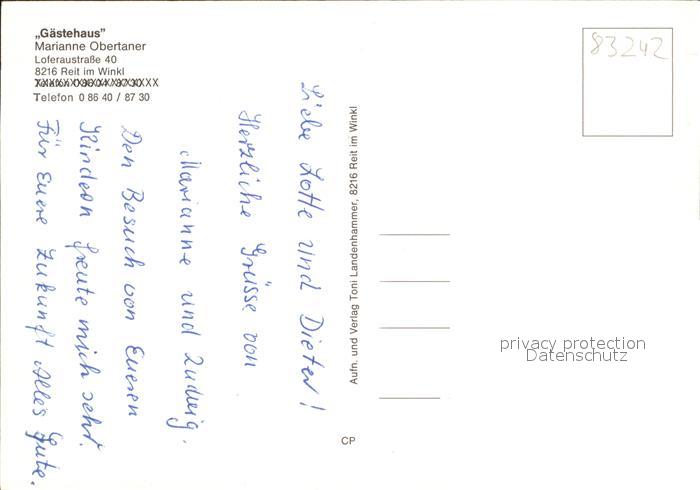 „Gästehaus”
Marianne Obertaner
Loferaustraße 40
8216 Reit im Winkl
Telefon 0 86 40 / 87 30
Liebe Lotte und Dieter!
Herzliche Grüsse von
Marianne und Ludwig.
Den Besuch von Eueren
Kindern freute mich sehr.
Für Euere Zukunft Alles Gute.
Aufn. und Verlag Toni Landenhammer, 8216 Reit im Winkl
CP
83242
privacy protection
Datenschutz